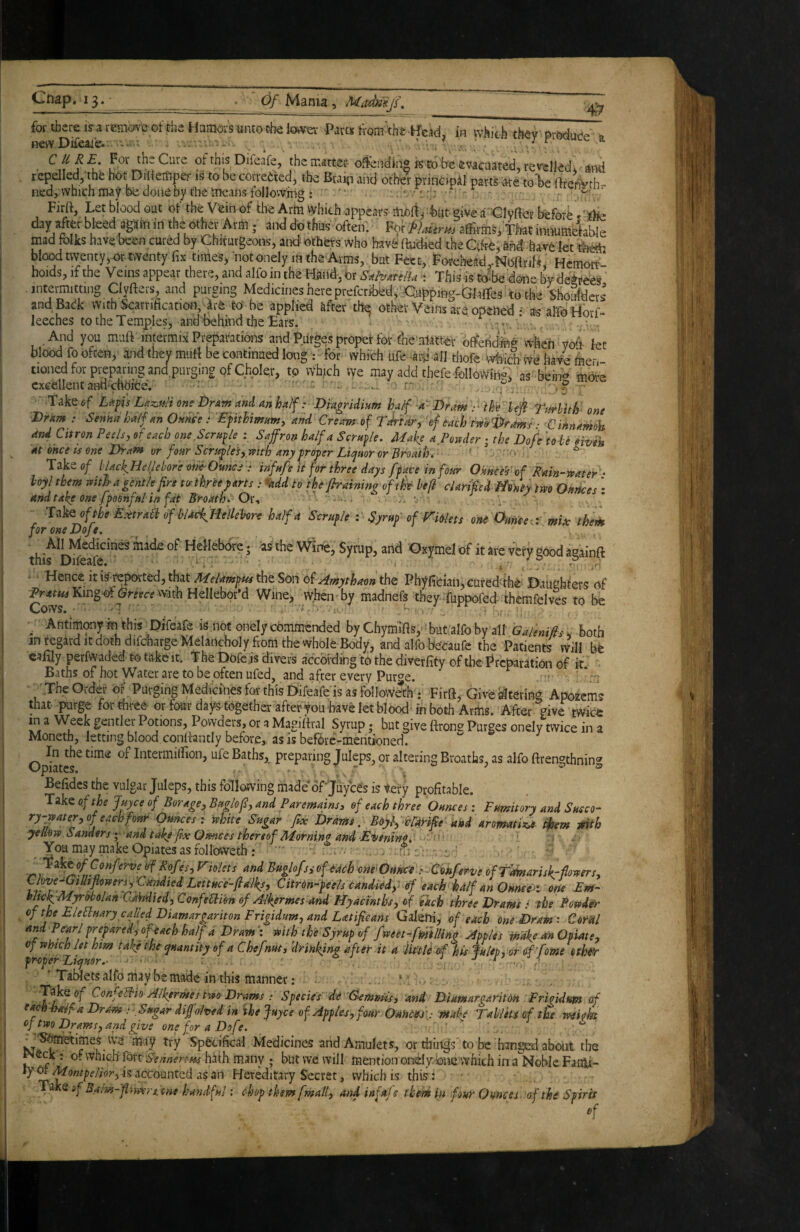 Chap. 13. Of Mania, Madness. 47
for there is a remove of the Humors unto the lower Parts from the Head, in which they produce a
new Disease.
CURE. For the Cure of this Disease, the matter offending is to be evacuated, revelled, and
repelled, the hot Distemper is to be corrected, the Brain and other principal parts are to be strength-
ned, which may be done by the means following:
First, Let blood out of the Vein of the Arm which appears most, but give a Clyster before; the
day after bleed again in the other Arm; and do thus often. For Platerus affirms, That innumerable
mad folks have been cured by Chirurgeons, and others who have studied the Cure, and have let them
blood twenty, or twenty six times, not onely in the Arms, but Feet, Forehead, Nostrils, Hemorr-
hoids, if the Veins appear there, and also in the Hand, or Salvatella: This is to be done by degrees,
intermitting Clysters, and purging Medicines here prescribed; Cupping-Glasses to the Shoulders
and Back with Scarrification, are to be applied after the other Veins are opened: as also Horf-
leeches to the Temples, and behind the Ears.
And you must intermix Preparations and Purges proper for the matter offending when you let
blood so often, and they must be continued long: for which use and all those which we have men-
tioned for preparing and purging of Choler, to which we may add these following, as being more
excellent and choice.
Take of Lapis Lazuli one Dram and an half: Diagridium half a Dram: the best Turbith one
Dram: Senna half an Ounce: Epithimum, and Cream of Tartar, of each two Drams: Cinnamon
and Citron Peels, of each one Scruple: Saffron half a Scruple. Make a Powder; the Dose to be given
at once is one Dram or four Scruples, with any proper Liquor or Broath.
Take of black Hellebore one Ounce: infuse it for three days space in four Ounces of Rain-water:
boyl them with a gentle fire to three parts: add to the straining of the best clarified Honey two Ounces:
and take one spoonful in fat Broath. Or,
Take of the Extract of black Hellebore half a Scruple: Syrup of Violets one Ounce: mix them
for one Dose.
All Medicines made of Hellebore; as the Wine, Syrup, and Oxymel of it are very good against
this Disease.
Hence it is reported, that Melampus the Son of Amythaon the Physician, cured the Daughters of
Prætus King of Greece with Hellebor'd Wine, when by madness they supposed themselves to be
Cows.
Antimony in this Disease is not onely commended by Chymists, but also by all Galenists, both
in regard it doth discharge Melancholy from the whole Body, and also because the Patients will be
easily perswaded to take it. The Dose is divers according to the diversity of the Preparation of it.
Baths of hot Water are to be often used, and after every Purge.
The Order of Purging Medicines for this Disease is as followeth: First, Give altering Apozems
that purge for three or four days together after you have let blood in both Arms. After give twice
in a Week gentler Potions, Powders, or a Magistral Syrup; but give strong Purges onely twice in a
Moneth, letting blood constantly before, as is before-mentioned.
In the time of Intermission, use Baths, preparing Juleps, or altering Broaths, as also strengthning
Opiates.
Besides the vulgar Juleps, this following made of Juyces is very profitable.
Take of the Juyce of Borage, Bugloss, and Paremains, of each three Ounces: Fumitory and Succo-
ry-water, of each four Ounces: white Sugar six Drams. Boyl, clarifie and aromatize them with
yellow Sanders; and take six Ounces thereof Morning and Evening.
You may make Opiates as followeth:
Take of Conserve of Roses, Violets and Bugloss, of each one Ounce: Conserve of Tamarisk-flowers,
Clove-Gilliflowers, Candied Lettuce-stalks, Citron-peels candied, of each half an Ounce: one Em-
blick Myrobolan Candied, Confection of Alkermes and Hyacinths, of each three Drams: the Powder
of the Electuary called Diamargariton Frigidum, and Lætificans Galeni, of each one Dram: Coral
and Pearl prepared, of each half a Dram: with the Syrup of sweet-smelling Apples make an Opiate,
of which let him take the quantity of a Chesnut, drinking after it a little of his Julep, or of some other
proper Liquor.
Tablets also may be made in this manner:
Take of Confectio Alkermes two Drams: Species de Gemmis, and Diamargariton Frigidum of
each half a Dram: Sugar dissolved in the Juyce of Apples, four Ounces: make Tablets of the weight
of two Drams, and give one for a Dose.
Sometimes we may try Specifical Medicines and Amulets, or things to be hanged about the
Neck: of which sort Sennertus hath many; but we will mention onely one which in a Noble Fami-
ly of Montpelior, is accounted as an Hereditary Secret, which is this:
Take of Balm-flowers one handful: chop them small, and infuse them in four Ounces of the Spirit
of